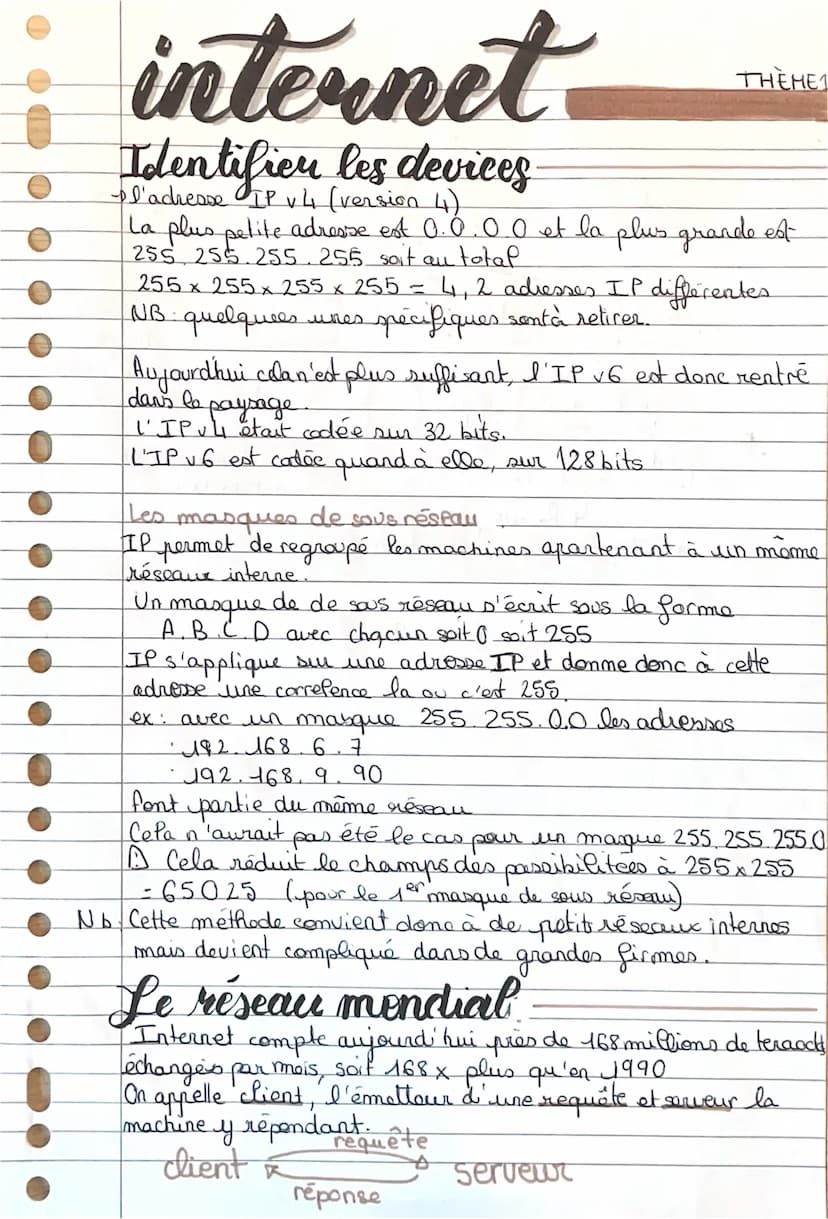 internet
THÈME1
Identifier les devices
→ l'adresse IP v4 (version 4)
La plus petite adresse est 0.0.0.0 et la plus grande est
255.255.255.255 soit au total
255 x 255 x 255 x 255 = 4,2 adresses IP différentes
NB : quelquees unes spécifiques sont à retirer.
Aujourd'hui cela n'est plus suffisant, l'IP v6 est donc rentré
dans le paysage.
L'IP v4 était codée sur 32 bits.
L'IP v6 est codée quand à elle, sur 128 bits
Les masques de sous réseau
IP permet de regroupé les machines apartenant à un même
réseaux interne.
Un masque de de sous réseau s'écrit sous la forme
A.B.C.D avec chacun soit 0 soit 255
IP s'applique sur une adresse IP et donne donc à cette
adresse une correfence la ou c'est 255
ex : avec un masque 255.255.0.0 les adresses
· 192.168.6.7
· 192.168.9.90
font partie du même réseau
Cela n'aurait pas été le cas pour un masque 255.255.255.0
⚠ Cela réduit le champs des possibilitées à 255 x 255
= 65025 (pour le 1er masque de sous réseau)
Nb : Cette méthode convient donc à de petit réseaux internes
mais devient compliqué dans de grandes firmes.
Le réseau mondial
Internet compte aujourd'hui près de 168 millions de
échangés par mois, soit 168 x plus qu'en 1990
On appelle client, l'émetteur d'une requête et serveur la
machine y répondant.
requête
client
serveur
réponse